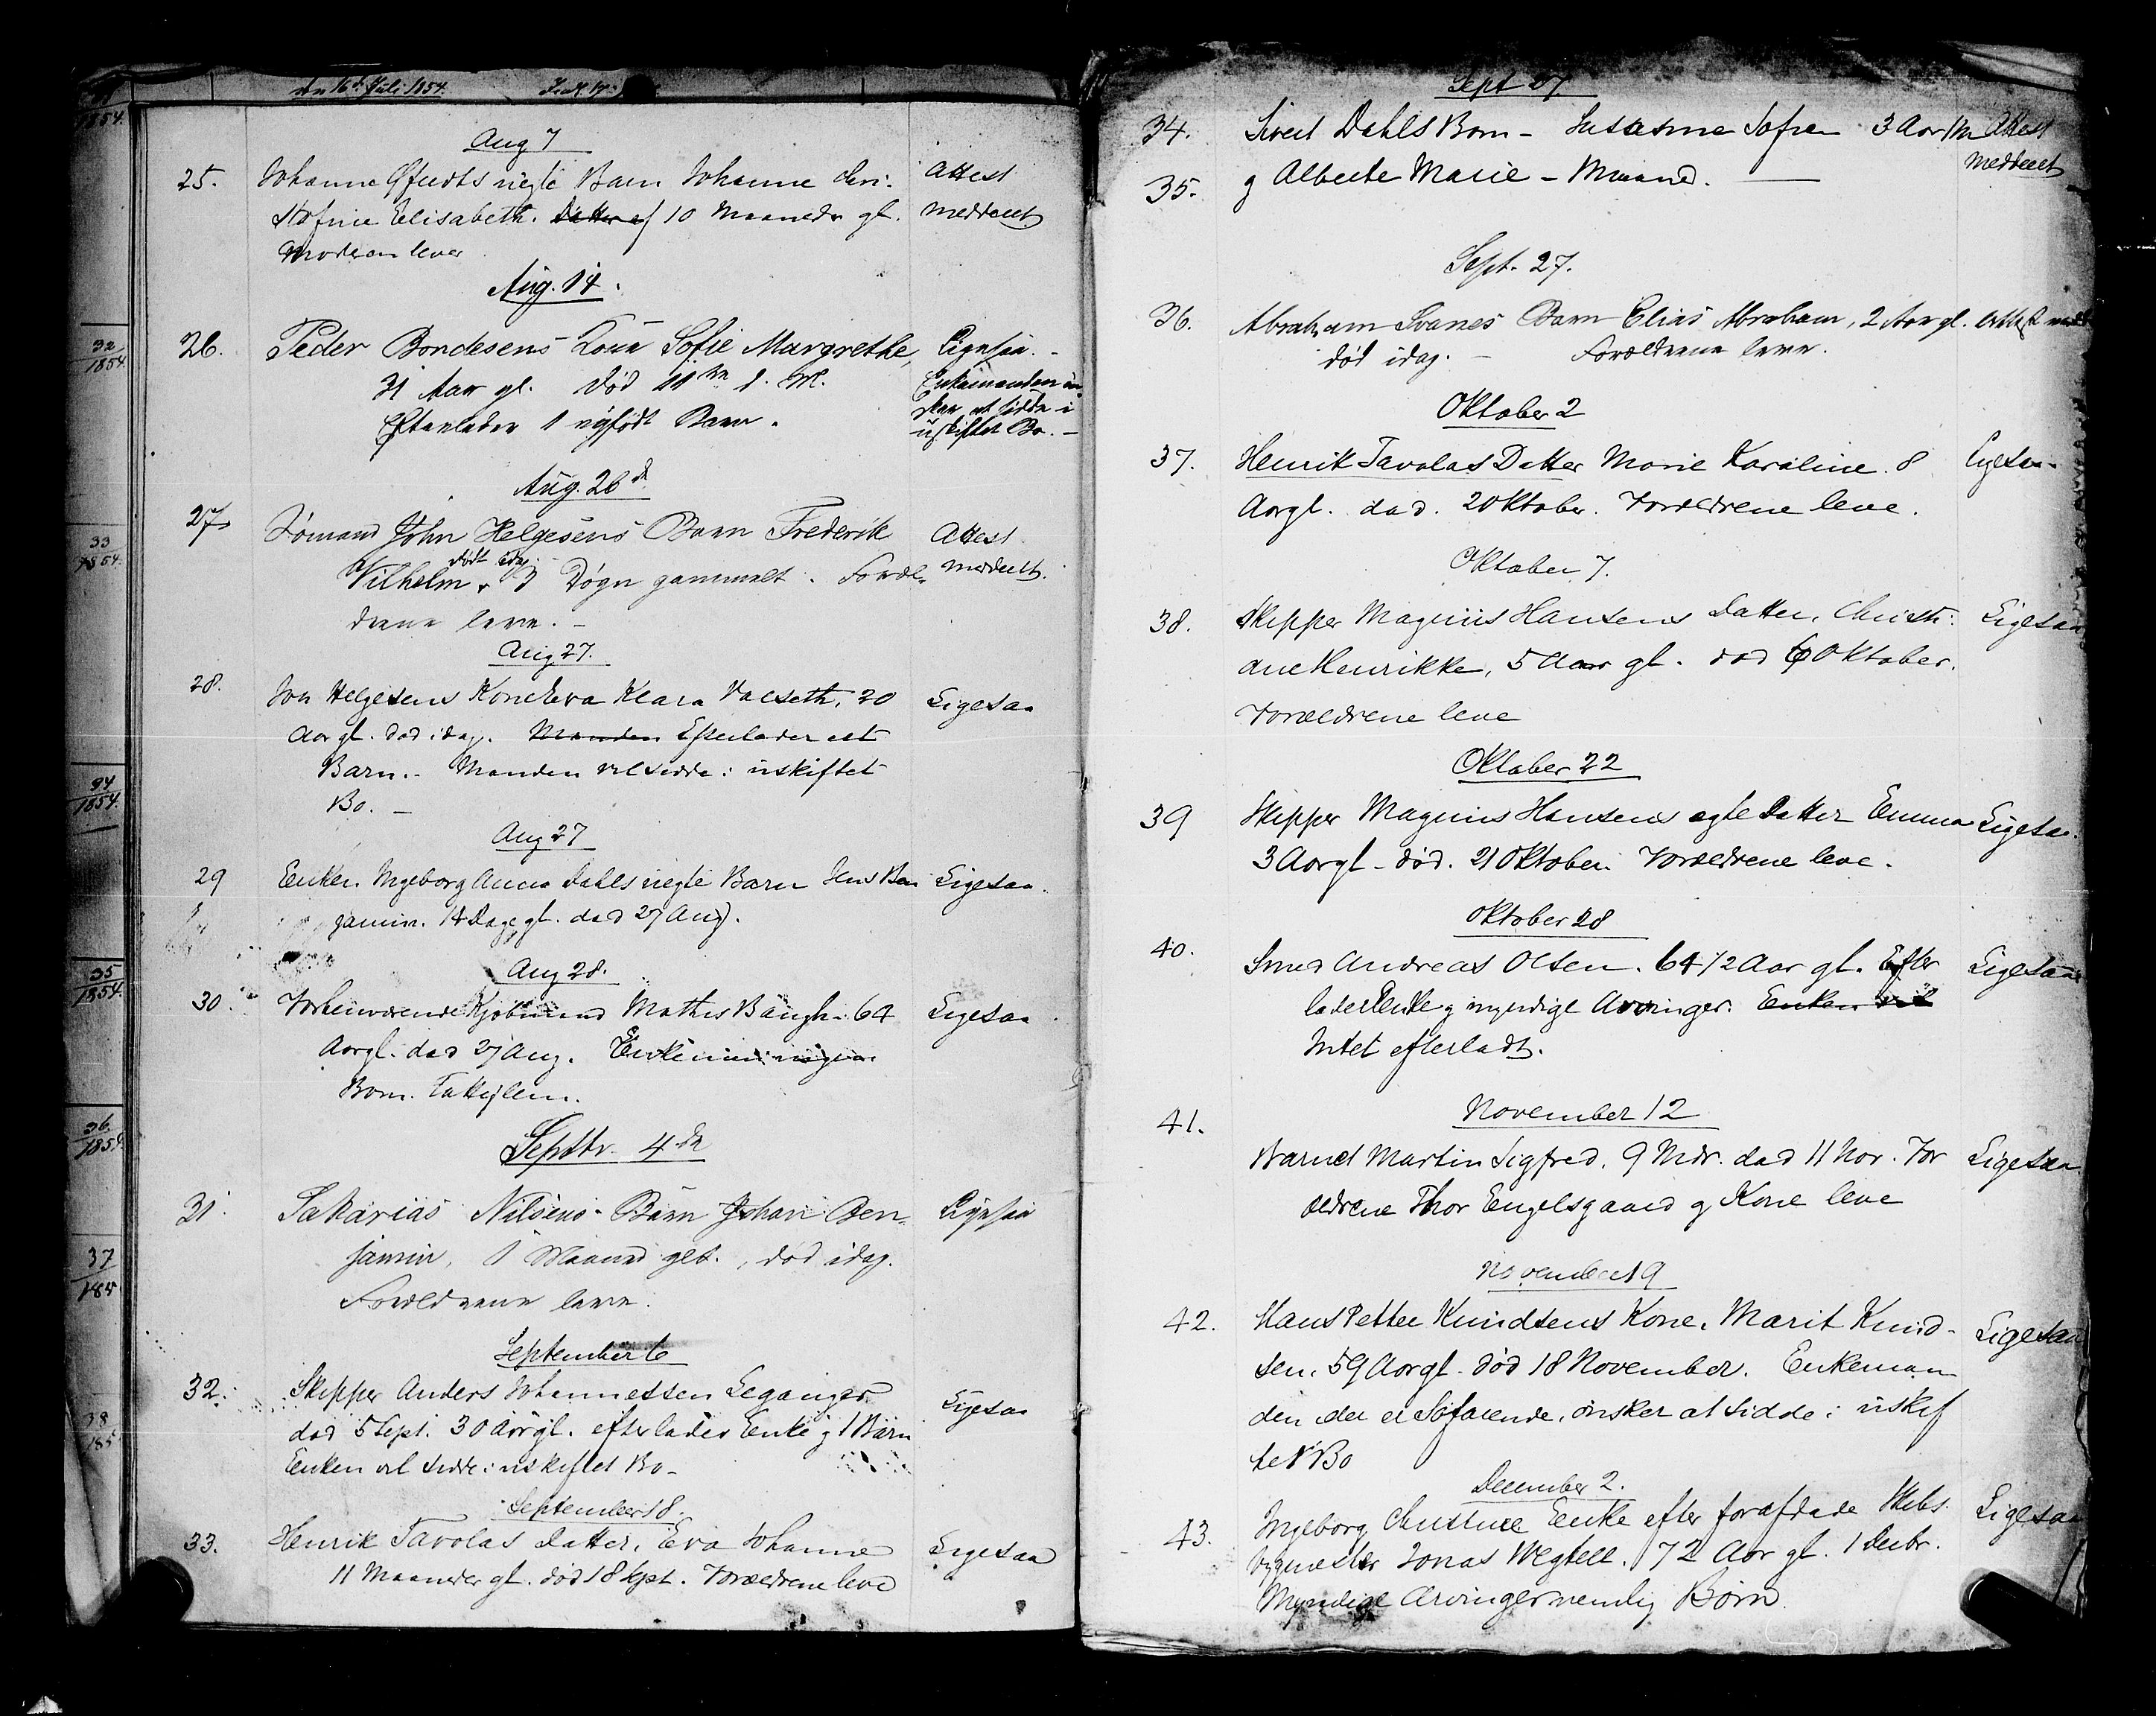 den 16de Juli 1854.
1854.
32
1854.
33
1854.
34
1854.
35
1854.
36.
1854.
37
185
38
185
Aug 7
25. Johanne uegte Barn Johanne
Elisabeth. Datter af 10 Maaneder gl. Attest meddeelt
Moderen lever
Aug. 14.
26. Peder Bondesens Kone Sofie Margrethe, Ligesaa.-
31 Aar gl. død 11te d. M. Enkemanden øn-
Efterlader 1 nyfødt Barn. sker at sidde i
uskiftet Bo.-
Aug. 26de
27. Sømand John Helgesens Barn Frederik Attest
Vilhelm, dødt idag, Døgn gammelt. Foræl- meddeelt.
drene leve.-
Aug 27.
28. Jon Helgesens Kone Eva Klara Valseth, 20 Ligesaa
Aar gl. død idag. Manden Efterlader et
Barn.- Manden vil sidde i uskiftet
Bo.-
Aug 27
29 Enken Ingeborg Anna Dahls uegte Barn Jens Ben Ligesaa.
jamin. 14 Dage gl. død 27 Aug.
Aug 28.
30. Forhenværende Kjøbmand Mathis Baugh. 64 Ligesaa
Aar gl. død 27 Aug.
Born. Fattiglem.
Septbr. 4de
31. Sakarias Nilsens Barn Johan Ben- Ligesaa
jamin, 1 Maaned glt., død idag.
Forældrene leve.
September 6
32. Skipper Anders Johannessen Leganger Ligesaa
død 5 Sept. 30 Aar gl. efterlader Enke og 1 Barn
Enken vil sidde i uskiftet Bo-
September 18.
33. Henrik Tavolas Datter, Eva Johanne Ligesaa
11 Maaneder gl. død 18 Sept. Forældrene leve
Sept 27.
34. Sivert Dahls Born - Susanne Sofie 3 Aar Attest
35. og Alberte Marie - Maaned. meddeelt
Sept. 27.
36. Abraham Svanes Barn Elias Abraham, 2 Aar gl. Attest
død idag. - Forældrene leve.
Oktober 2
37. Henrik Tavolas Datter Marie Karoline. 8 Ligesaa
Aar gl. død. 2 Oktober. Forældrene leve.
Oktober 7.
38. Skipper Magnus Hansens Datter, Christi- Ligesaa
ane Henrikke, 5 Aar gl. død 6 Oktober.
Forældrene leve
Oktober 22
39 Skipper Magnus Hansens egte Datter Emma Ligesaa.
3 Aar gl - død. 21 Oktober. Forældrene leve.
Oktober 28
40. Smed Andreas Olsen. 64 1/2 Aar gl. Efter Ligesaa
lader Enke og myndige Arvinger. Enken vil
Intet efterladt.
November 12
41. Barnet Martin Sigfred. 9 Mdr. død 11 Nov. For Ligesaa
ældrene Thor Engelsgaard og Kone leve
November 19
42. Hans Petter Knudsens Kone, Marit Knud- Ligesaa
sen. 59 Aar gl. død 18 November. Enkeman
den, der er Søfarende, ønsker at sidde i uskif
tet Bo
December 2.
43. Ingeborg Christine Enke efter forafdøde Skibs- Ligesaa
bygmester Jonas Wegtell. 72 Aar gl. 1 Decbr.
Myndige Arvinger nemlig Børn.